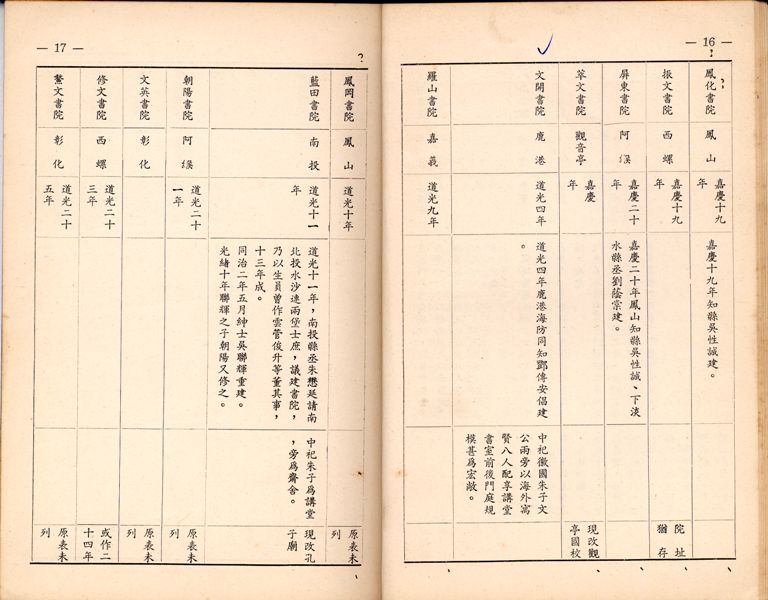 — 16 —
鳳化書院
鳳山
嘉慶十九
年
嘉慶十九年知縣吳性誠建。
振文書院
西螺
嘉慶十九
年
院址
猶存
屏東書院
阿猴
嘉慶二十
年
嘉慶二十年鳳山知縣吳性誠、下淡
水縣丞劉蔭棠建。
萃文書院
觀音亭
嘉慶
年
現改觀
亭國校
文開書院
鹿港
道光四年
道光四年鹿港海防同知鄧傳安倡建
。
中祀徽國朱子文
公兩旁以海外寓
賢八人配享講堂
書室前後門庭規
模甚爲宏敞。
羅山書院
嘉義
道光九年
— 17 —
鳳岡書院
鳳山
道光十年
原表未
列
藍田書院
南投
道光十一
年
道光十一年,南投縣丞朱懋延請南
北投水沙連兩堡士庶,議建書院,
乃以生員曾作雲管俊升等董其事,
十三年成。
同治二年五月紳士吳聯輝重建。
光緒十年聯輝之子朝陽又修之。
中祀朱子爲講堂
,旁爲齋舍。
現改孔
子廟
朝陽書院
阿猴
道光二十
一年
原表未
列
文英書院
彰化
原表未
列
修文書院
西螺
道光二十
三年
或作二
十四年
鰲文書院
彰化
道光二十
五年
原表未
列